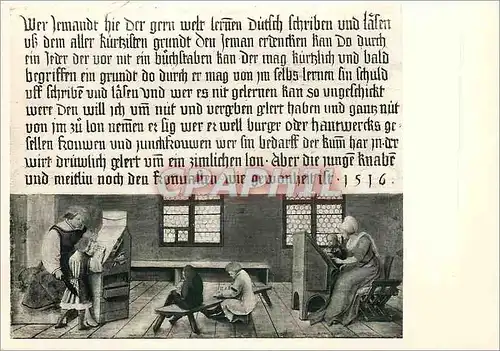 Wer Jemandt hie der gern welt lernen Dütsch schriben und läsen
uß dem aller kürtzisten grundt den Jeman erdencken kan Do durch
ein Jeder der vor nit ein büchstaben kan der mag kürtzlich und bald
begriffen ein grundt do durch er mag von jm selbs lernen sin schuld
uff schribē und läsen Und wer es nit gelernen kan so ungeschickt
were Den will jch um nüt und vergeben glert haben und gantz nüt
von jm zů lon nemen er sig wer er well burger oder hantwercks ge-
sellen frouwen und junckfrouwen wer sin bedarff der kum har jn der
wirt drüwlich glert um ein zimlichen lon · Aber die junge knabē
und meitlin noch den fronuasten wie gewonheit ist · 1516 ·
PRCARTE